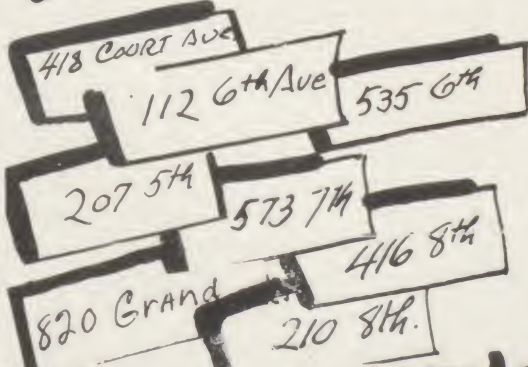 418 COURT AVE
112 6th Ave
535 6th
207 5th
573 7th
416 8th
820 GrAnd
210 8th.